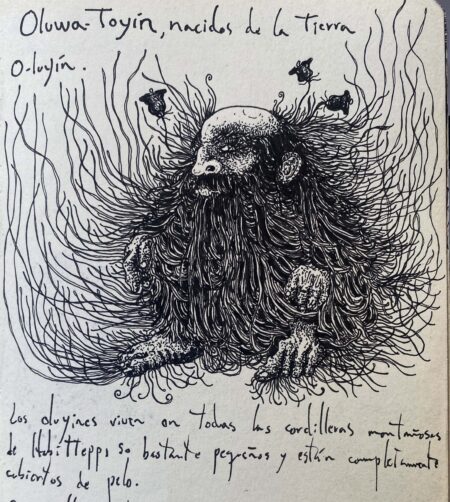 Oluwa-Toyin, nacidos de la Tierra
O-luyín.
Los oluyines viven en todas las cordilleras montañosas
de so bastante pequeños y están completamente
cubiertos de pelo.